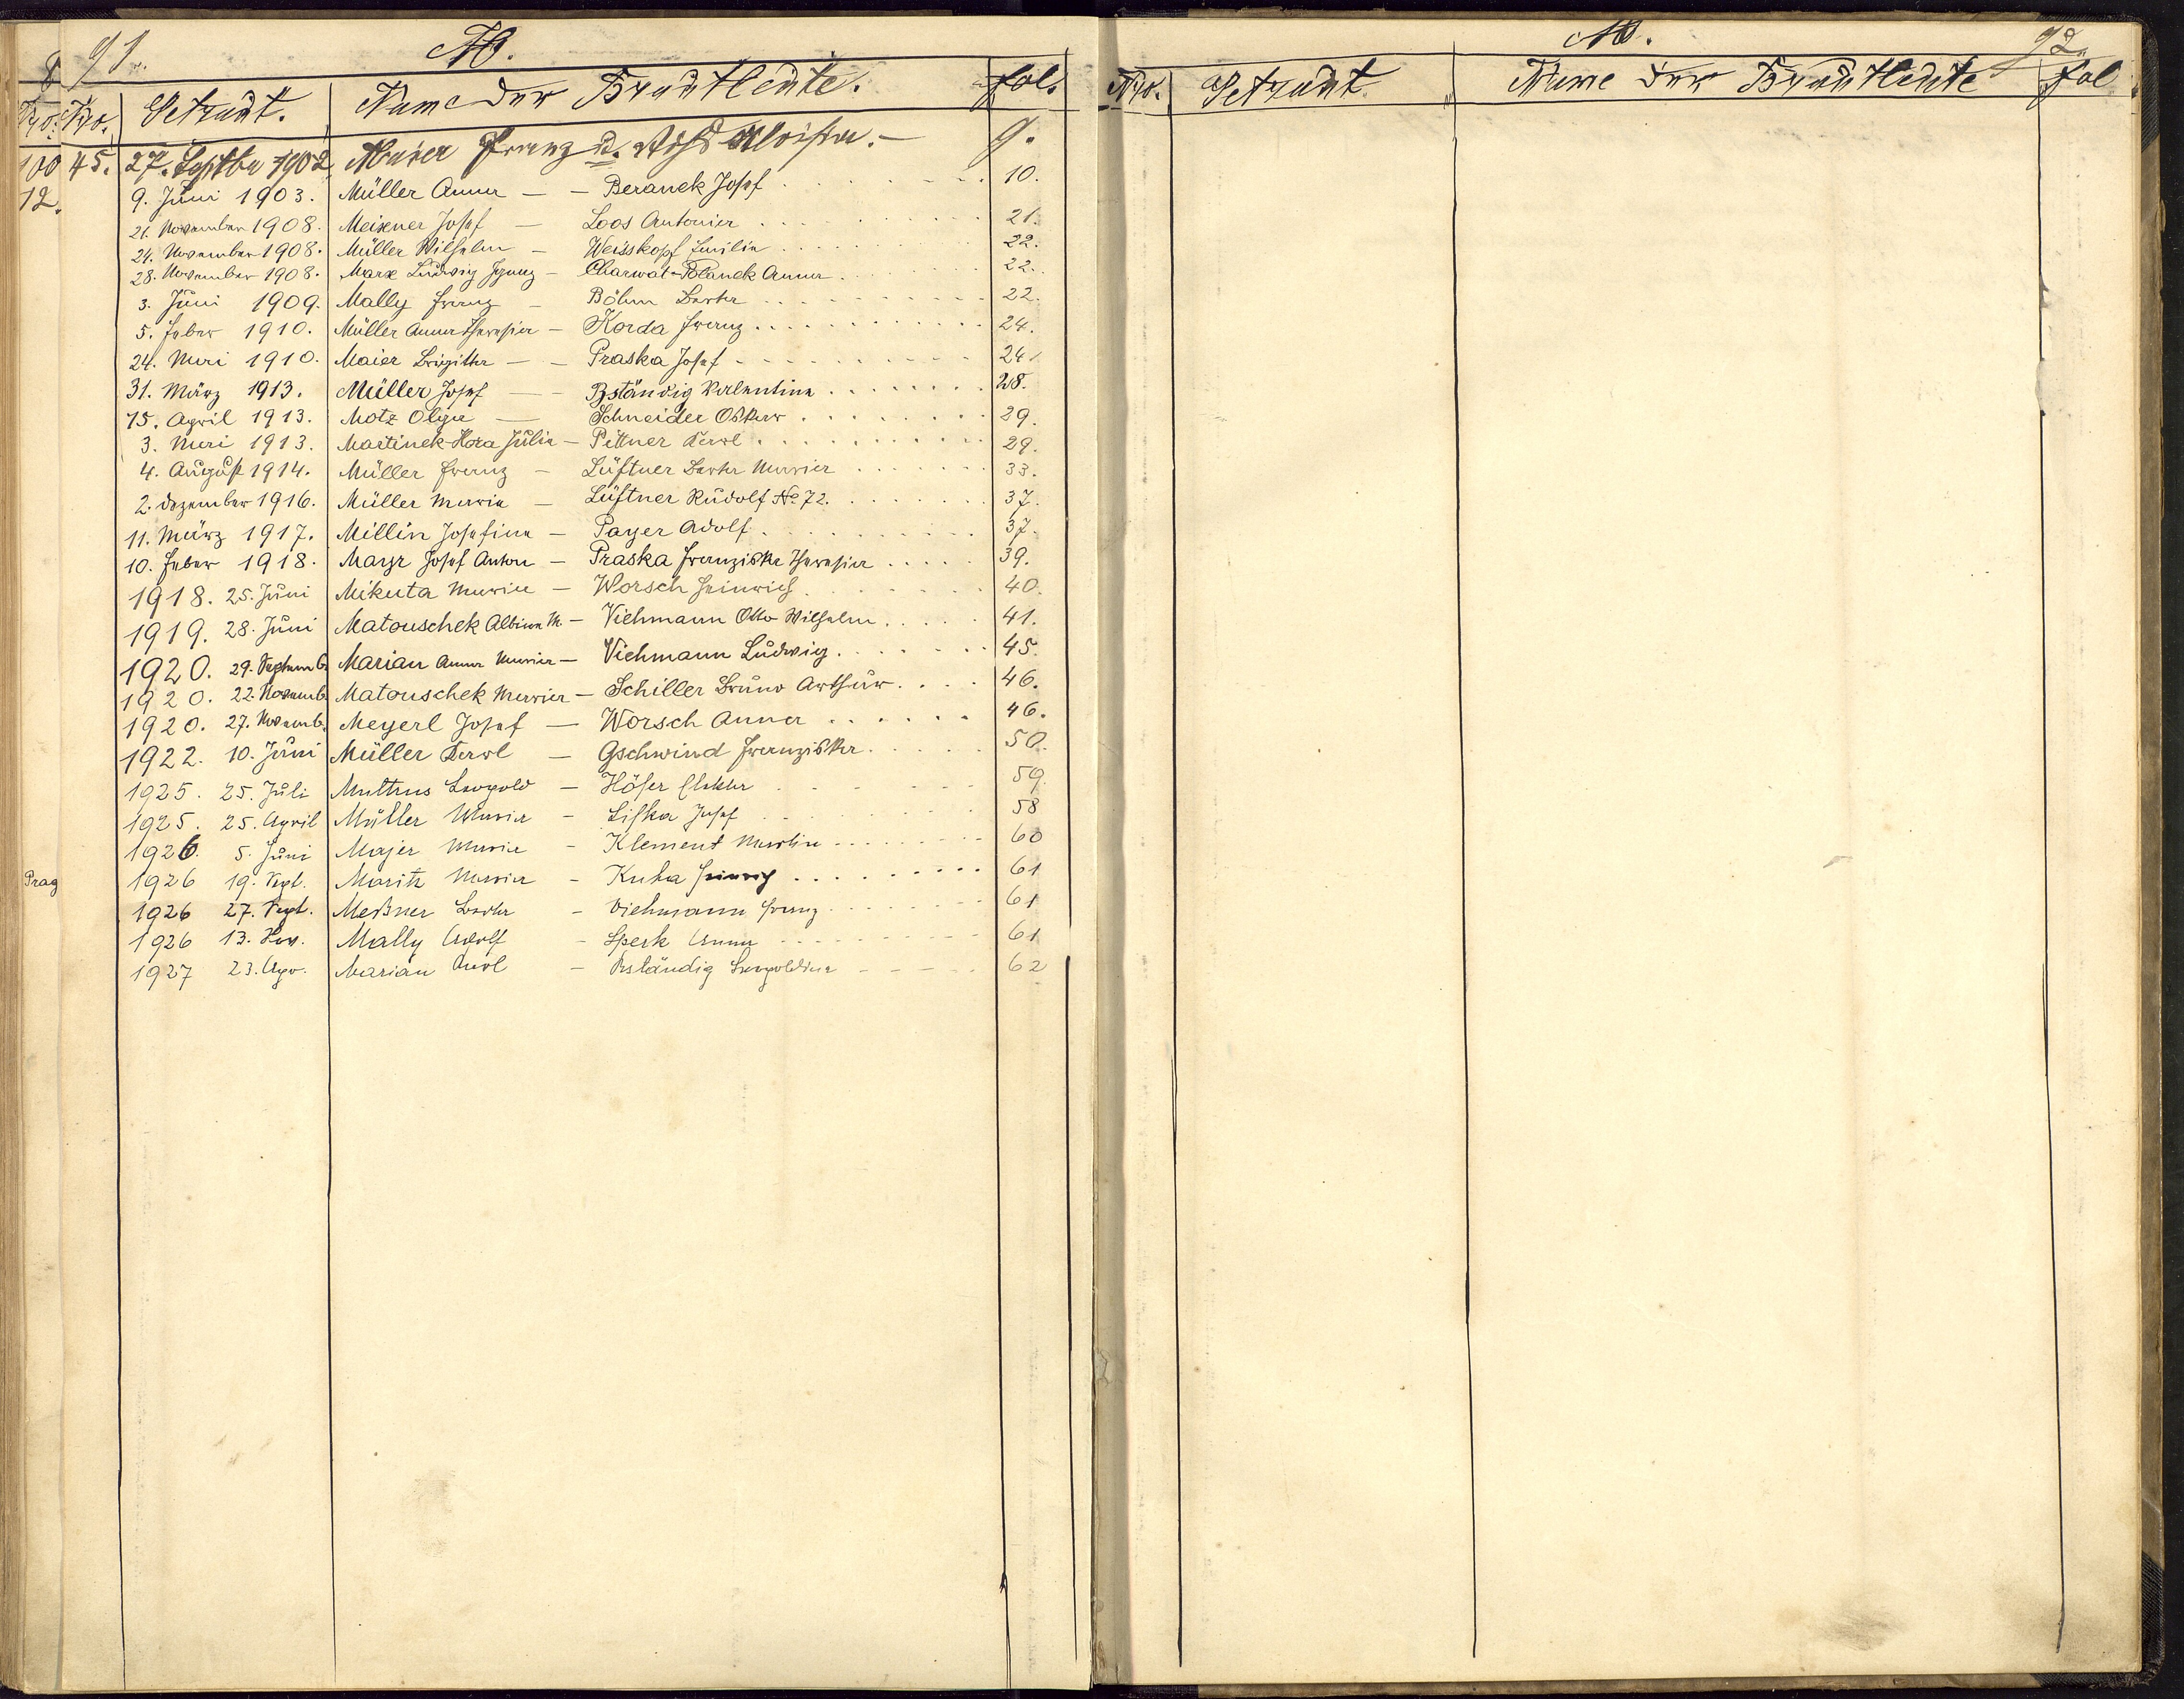 91. M.
Nro. Nro. Getraut. Name der Brautleute. fol.
100 45. 27. Septbr 1902 Maier Franz u. Aloisia. — 9.
12. 9. Juni 1903. Müller Anna — — Beranek Josef 10.
21. November 1908. Meixner Josef — Loos Antonia 21.
24. November 1908. Müller Wilhelm — Weisskopf Emilie 22.
28. November 1908. Marx Ludwig Ignaz — Charwat-Polanek Anna 22.
3. Juni 1909. Mally Franz — Böhm Berta 22.
5. Feber 1910. Müller Anna Theresia — Korda Franz 24.
24. Mai 1910. Maier Brigitta — — Praska Josef 24.
31. März 1913. Müller Josef — — Bständig Valentine 28.
15. April 1913. Motz Olga — Schneider Oskar 29.
3. Mai 1913. Martinek-Hora Julia — Pittner Karl 29.
4. August 1914. Müller Franz — Lüftner Berta Maria 33.
2. Dezember 1916. Müller Marie — Lüftner Rudolf No 72. 37.
11. März 1917. Millin Josefine — Payer Adolf 37.
10. Feber 1918. Mayr Josef Anton — Praska Franziska Theresia 39.
1918. 25. Juni Mikuta Marie — Worsch Heinrich 40.
1919. 28. Juni Matouschek Albine M. — Viehmann Otto Wilhelm 41.
1920. 29. Septemb. Marian Anna Maria — Viehmann Ludwig 45.
1920. 22. Novemb. Matouschek Maria — Schiller Bruno Arthur 46.
1920. 27. Novemb. Meyerl Josef — Worsch Anna 46.
1922. 10. Juni Müller Karl — Gschwind Franziska 50.
1925. 25. Juli Mattus Leopold — Höfer 59.
1925. 25. April Müller Maria — Liska Josef 58
1926. 5. Juni Majer Maria — Klement Martin 60
Prag 1926 19. Sept. Moritz Maria — Kuha Heinrich 61
1926 27. Sept. Meßner Berta — Viehmann Franz 61
1926 13. Nov. Mally Adolf — Sperk Anna 61
1927 23. Apr. Marian Karl — Bständig Leopoldine 62
M. 92.
Nro. Getraut. Name der Brautleute fol.